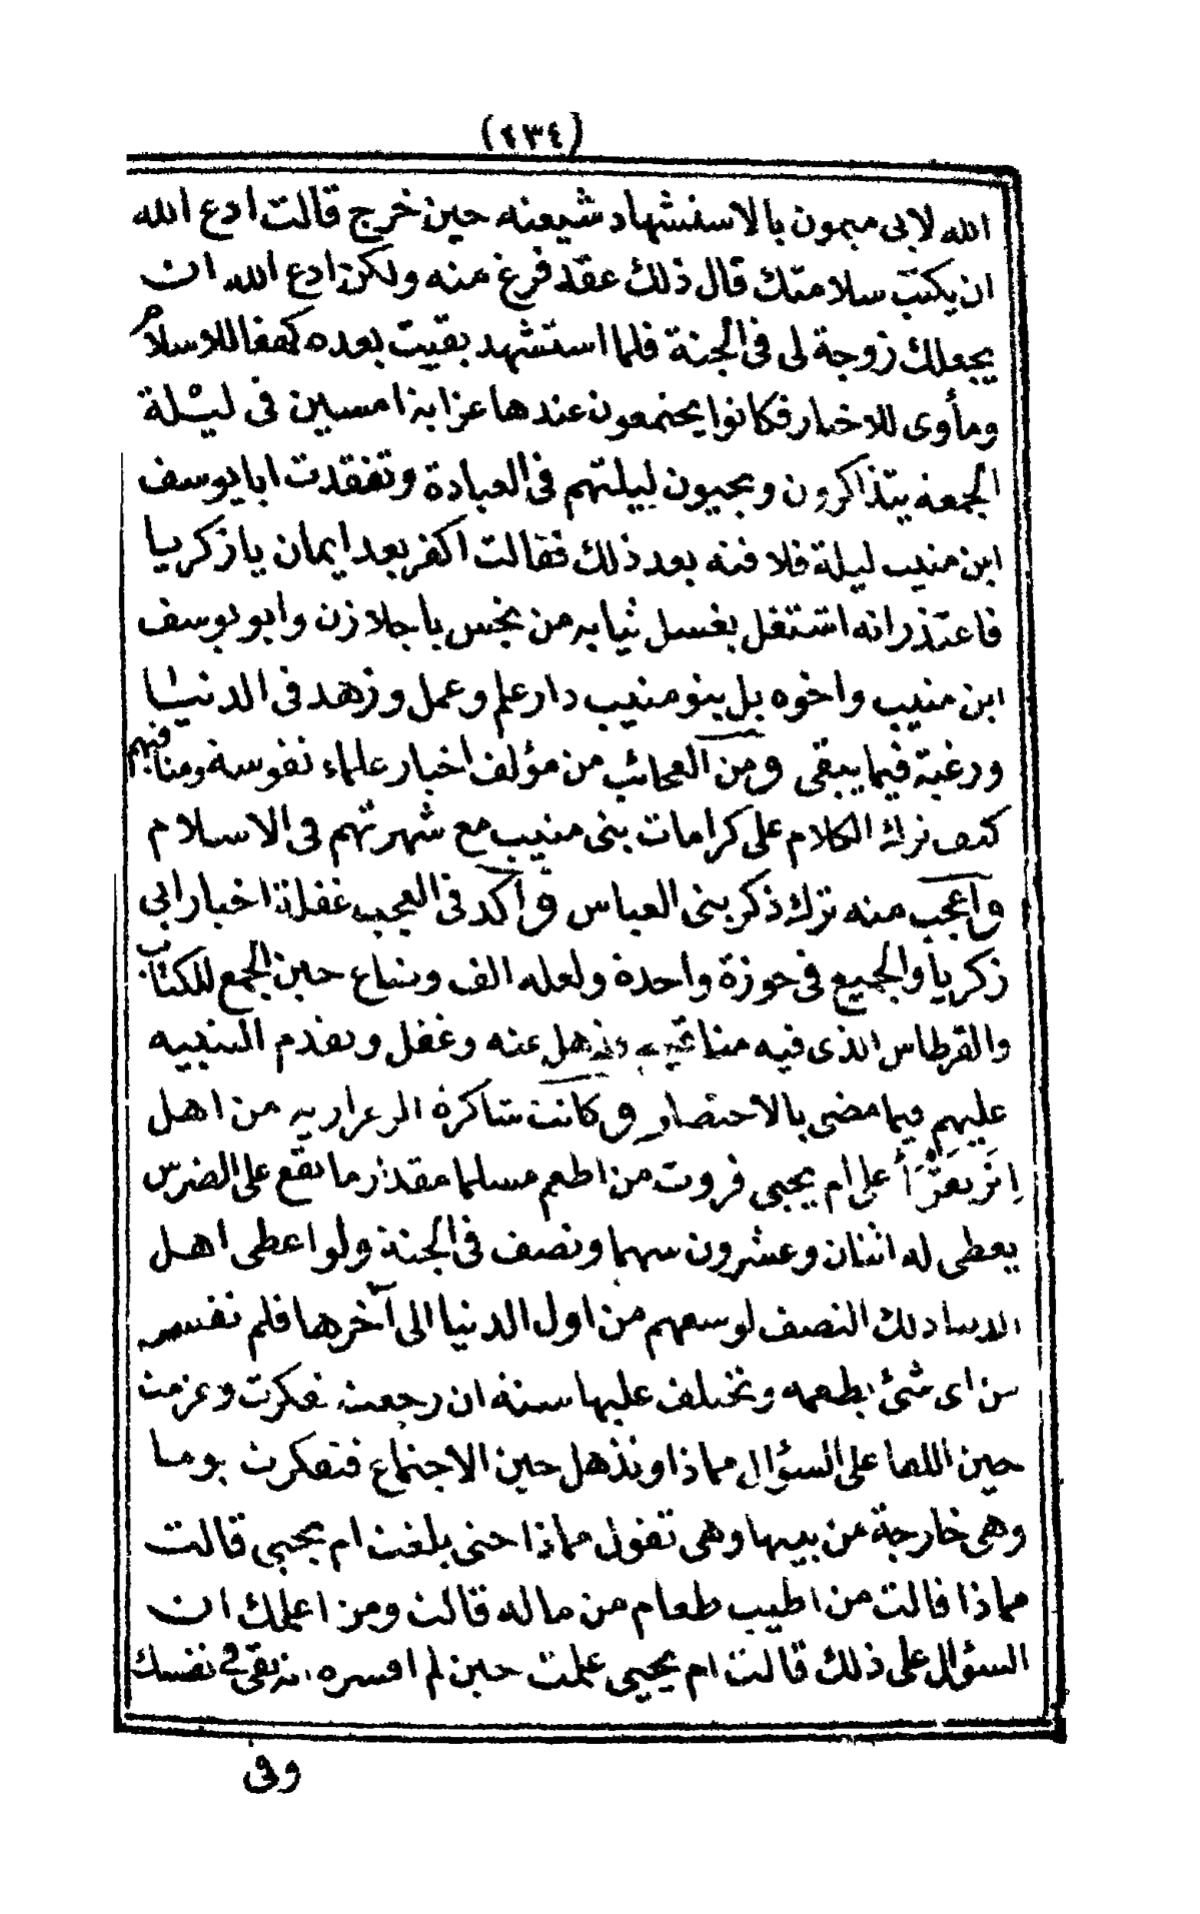 (٢٣٤)
الله لابى ميمون بالاستشهاد شيعته حين خرج قالت ادع الله
ان يكتب سلامتك قال ذلك عقد فرغ منه ولكن ادع الله ان
يجعلك زوجة لى فى الجنة فلما استشهد بقيت بعده كهفا للاسلام
ومأوى للاخيار فكانوا يجتمعون عندها عزابة امسين فى ليلة
الجمعة يتذاكرون ويحيون ليلتهم فى العبادة وتفقدت ابا يوسف
ابن منيب ليلة فلاقته بعد ذلك فقالت اكفر بعد ايمان يا زكريا
فاعتذر انه اشتغل بغسل ثيابه من نجس يا جلازن وابو يوسف
ابن منيب واخوه بل بنو منيب دار علم وعمل وزهد فى الدنيا
ورغبة فيما يبقى ومن العجائب من مؤلف اخبار علماء نفوسة ومناقبهم
كيف ترك الكلام على كرامات بنى منيب مع شهرتهم فى الاسلام
واعجب منه ترك ذكر بنى العباس وآكد فى العجب غفلة اخبار ابى
زكرياء والجميع فى حوزة واحدة ولعله الف وضاع حين الجمع للكتاب
والقرطاس الذى فيه مناقبهم وذهل عنه وغفل وتقدم التنبيه
عليهم فيما مضى بالاختصار وكانت شاكرة من اهل
على ام يحيى فروت من اطعم مسلما مقدار ما تقع على الضرس
يعطى له اثنان وعشرون سهما ونصف فى الجنة ولو اعطى اهل
الدنيا ذلك النصف لوسعهم من اول الدنيا الى آخرها فلم تفسر
من اى شئ يطعمه وتختلف عليها سنة ان رجعت تفكرت وعزمت
حين اللقا على السؤال مماذا وتذهل حين الاجتماع فتفكرت يوما
وهى خارجة من بيتها وهى تقول مماذا حتى بلغت ام يحيى قالت
مماذا قالت من اطيب طعام من ماله قالت ومن اعلمك ان
السؤال على ذلك قالت ام يحيى علمت حين لم افسره انه بقى فى نفسك
وفى